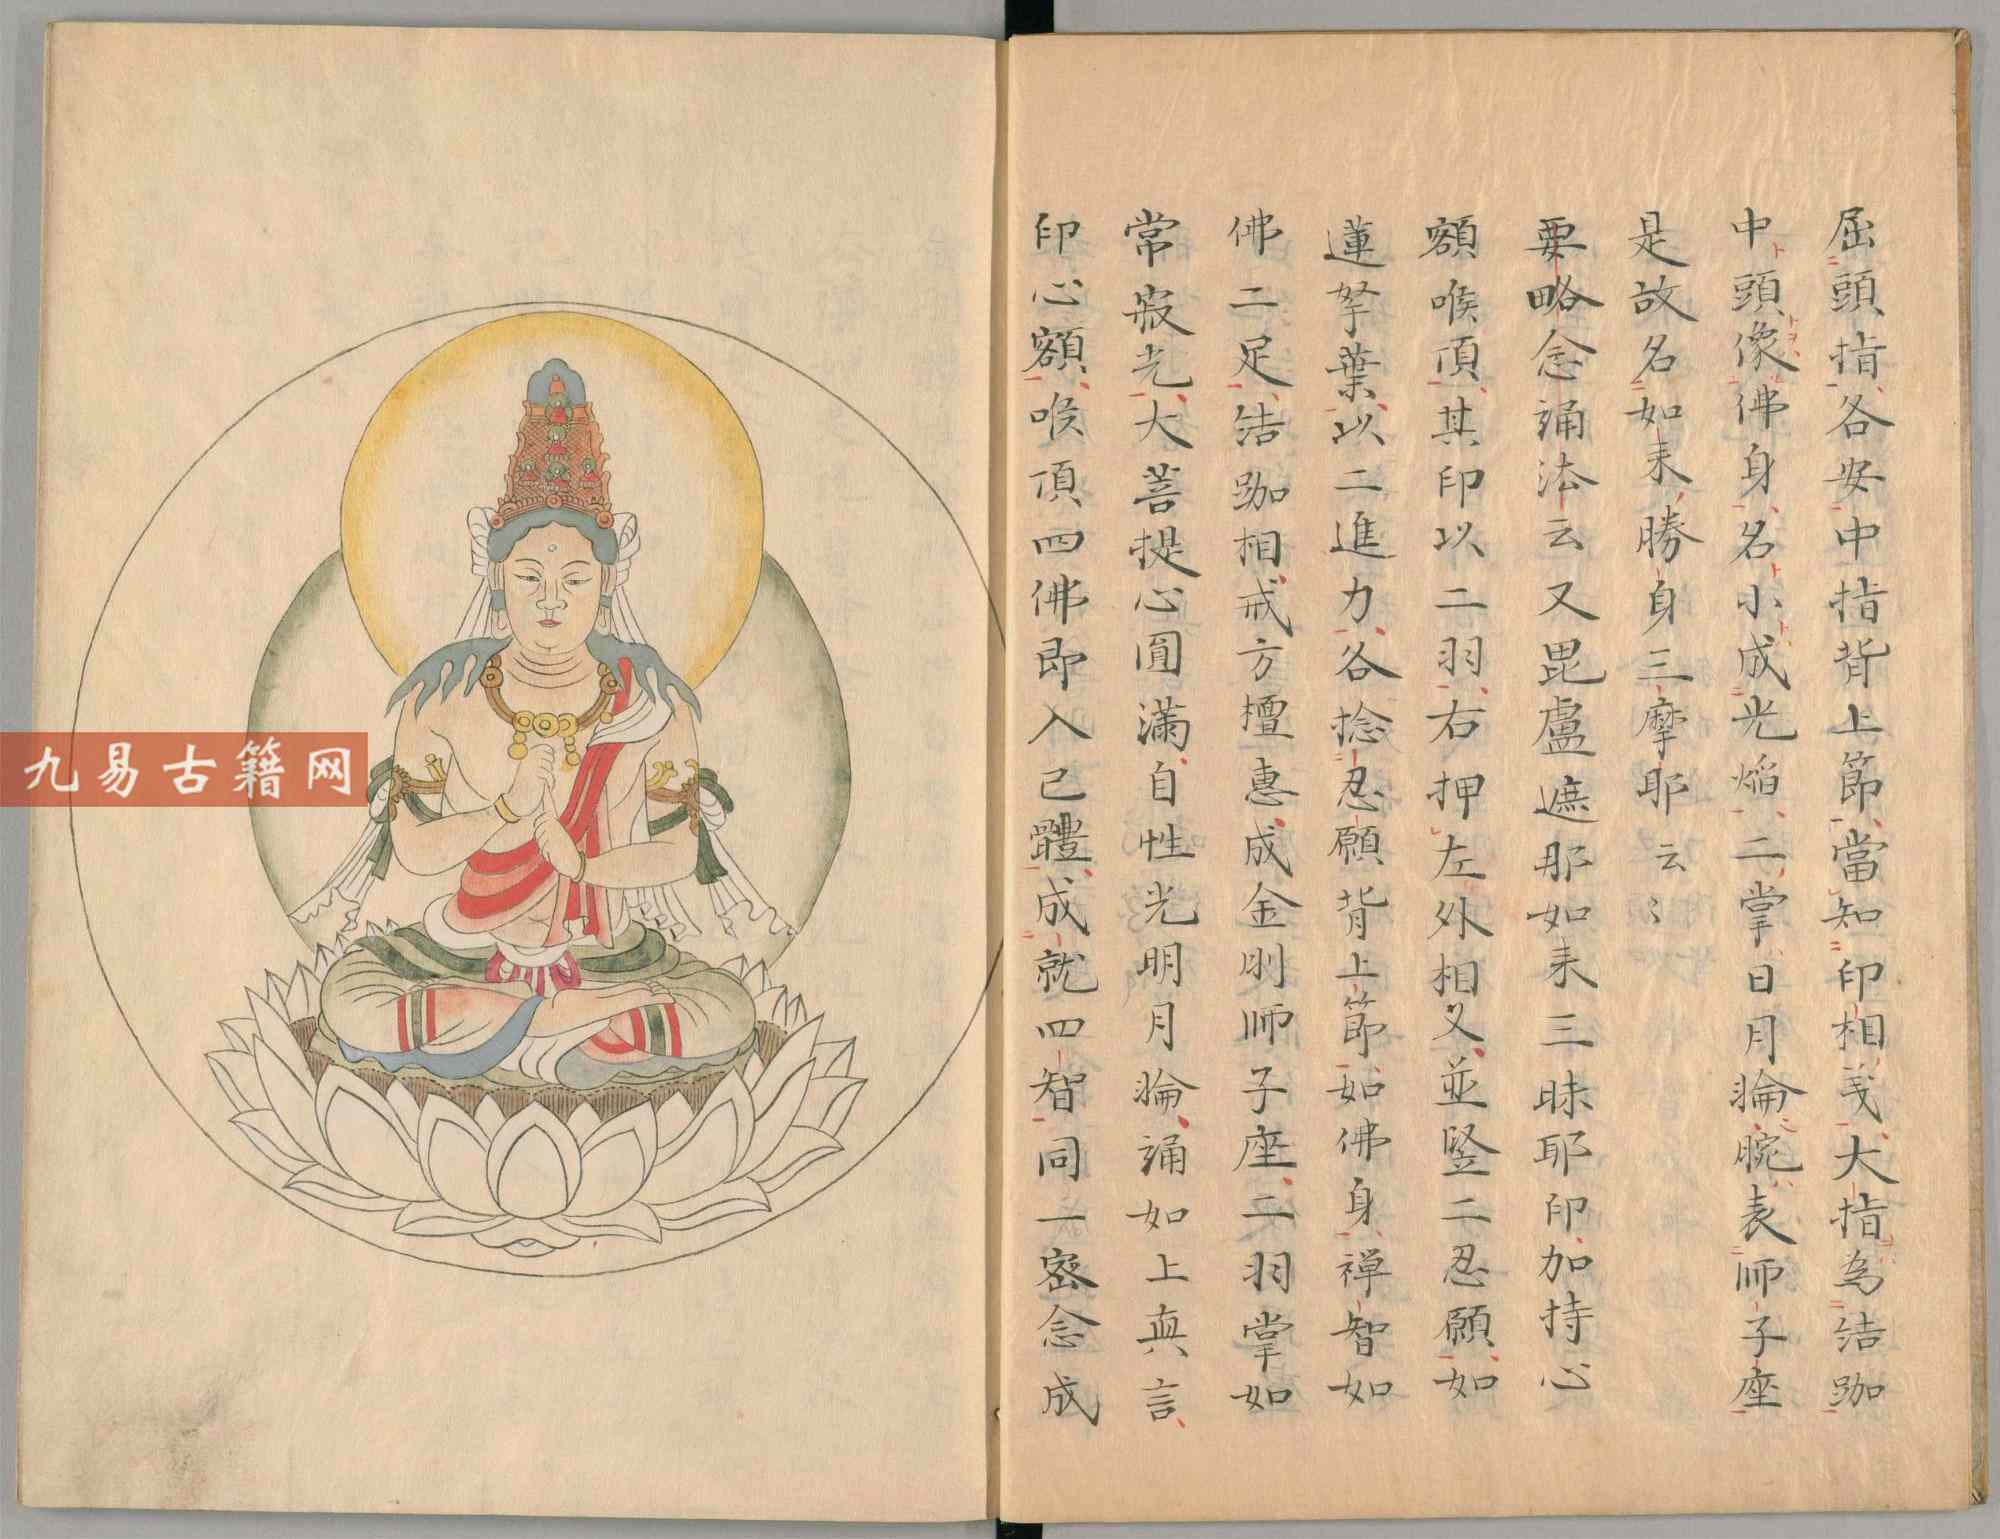 屈頭指各安中指背上節當知印相義大指為結跏
中頭像佛身名小成光焔二掌日月輪腕表師子座
是故名如来勝身三摩耶云〻
要略念誦法云又毘盧遮那如来三昧耶印加持心
額喉頂其印以二羽右押左外相叉並竪二忍願如
蓮葉以二進力各捻忍願背上節如佛身禅智如
佛二足結跏相戒方檀惠成金剛師子座二羽掌如
常寂光大菩提心圓満自性光明月輪誦如上真言
印心額喉頂四佛即入己體成就四智同一密念成
九易古籍网